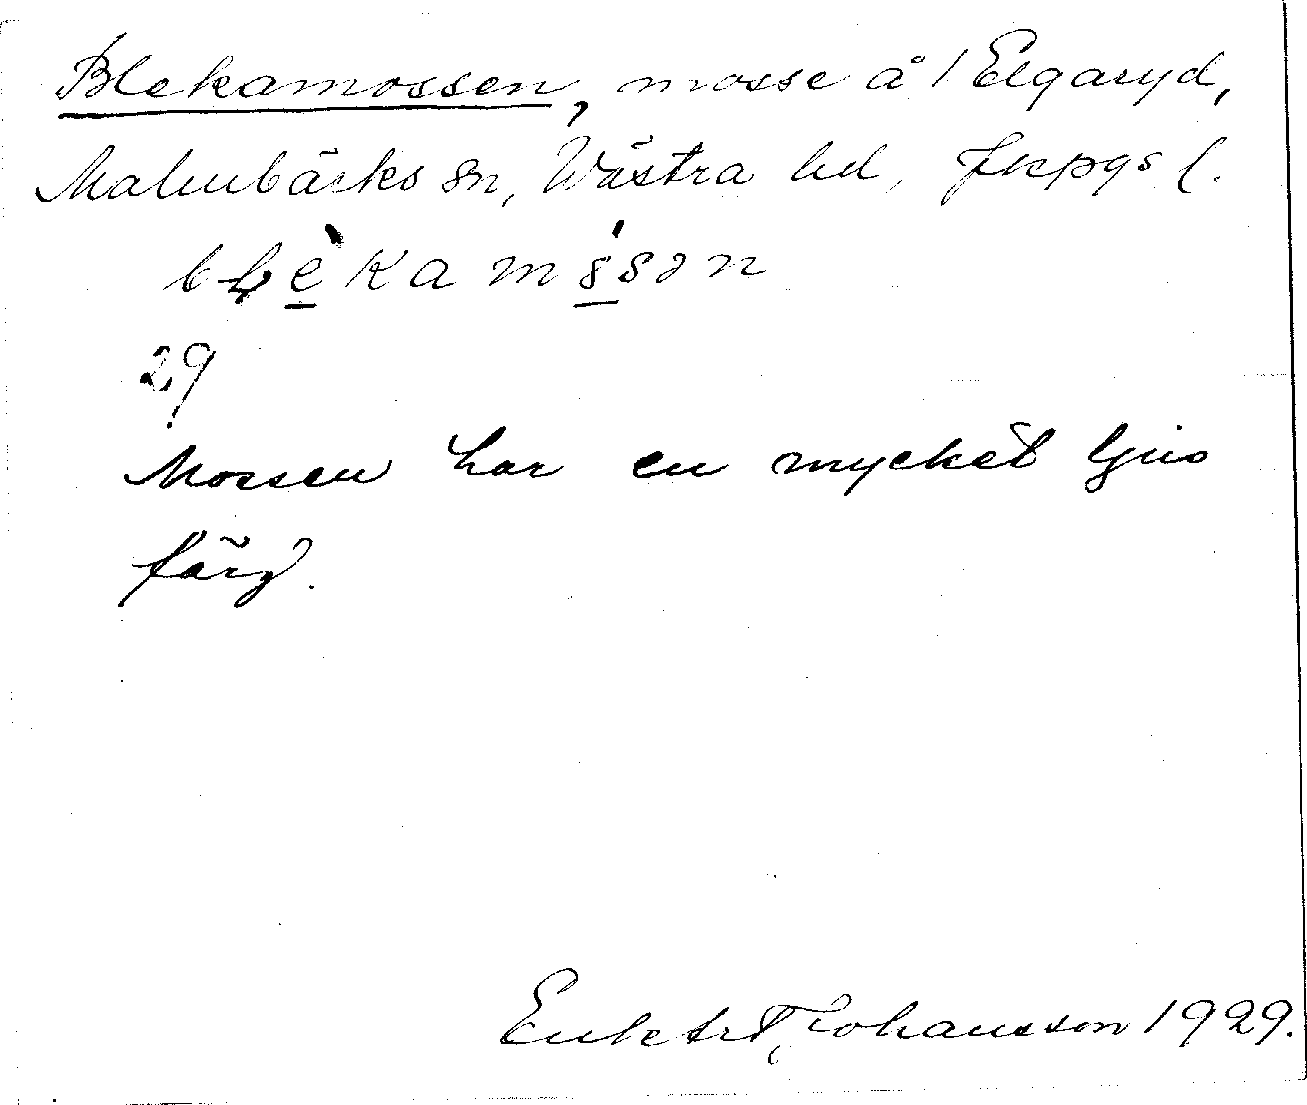 Blekamossen, mosse å 1 Elgaryd,
Malmbäcks sn, Västra hd, Jkpgs l.
blèkamósən
29
Mossen har en mycket ljus
färg.
Enl Art. Johansson 1929.